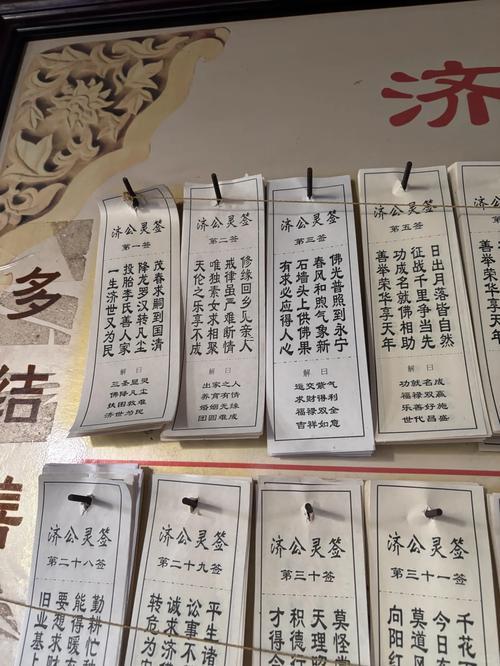 济
多
结
善
济公灵签
第一签
茂春求嗣到国清
降龙罗汉转凡尘
投胎李氏善人家
一生济世又为民
解曰
三圣显灵
佛降凡尘
扶困救难
济世为民
济公灵签
第二签
修缘回乡见亲人
戒律虽严难断情
唯独素女求相聚
天伦之乐享不成
解曰
出家之人
养育有情
婚姻无缘
团圆难成
济公灵签
第三签
佛光普照到永宁
春风和煦气象新
石墙头上供佛果
有求必应得人心
解曰
运交紫气
求财得利
福禄双全
吉祥如意
济公灵签
第五签
日出月落皆自然
征战千里争当先
功成名就佛相助
善举荣华享天年
解曰
功就名成
福禄双赢
乐善好施
世代昌盛
善举荣华享天年
济公灵签
第二十八签
勤耕忙种
能得暖
要想求财
旧业基上
济公灵签
第二十九签
平生诸
讼事不
诚求济
转危为
济公灵签
第三十签
莫怪
天理
积德
才得
济公灵签
第三十一签
千花
今日
莫道
向阳红